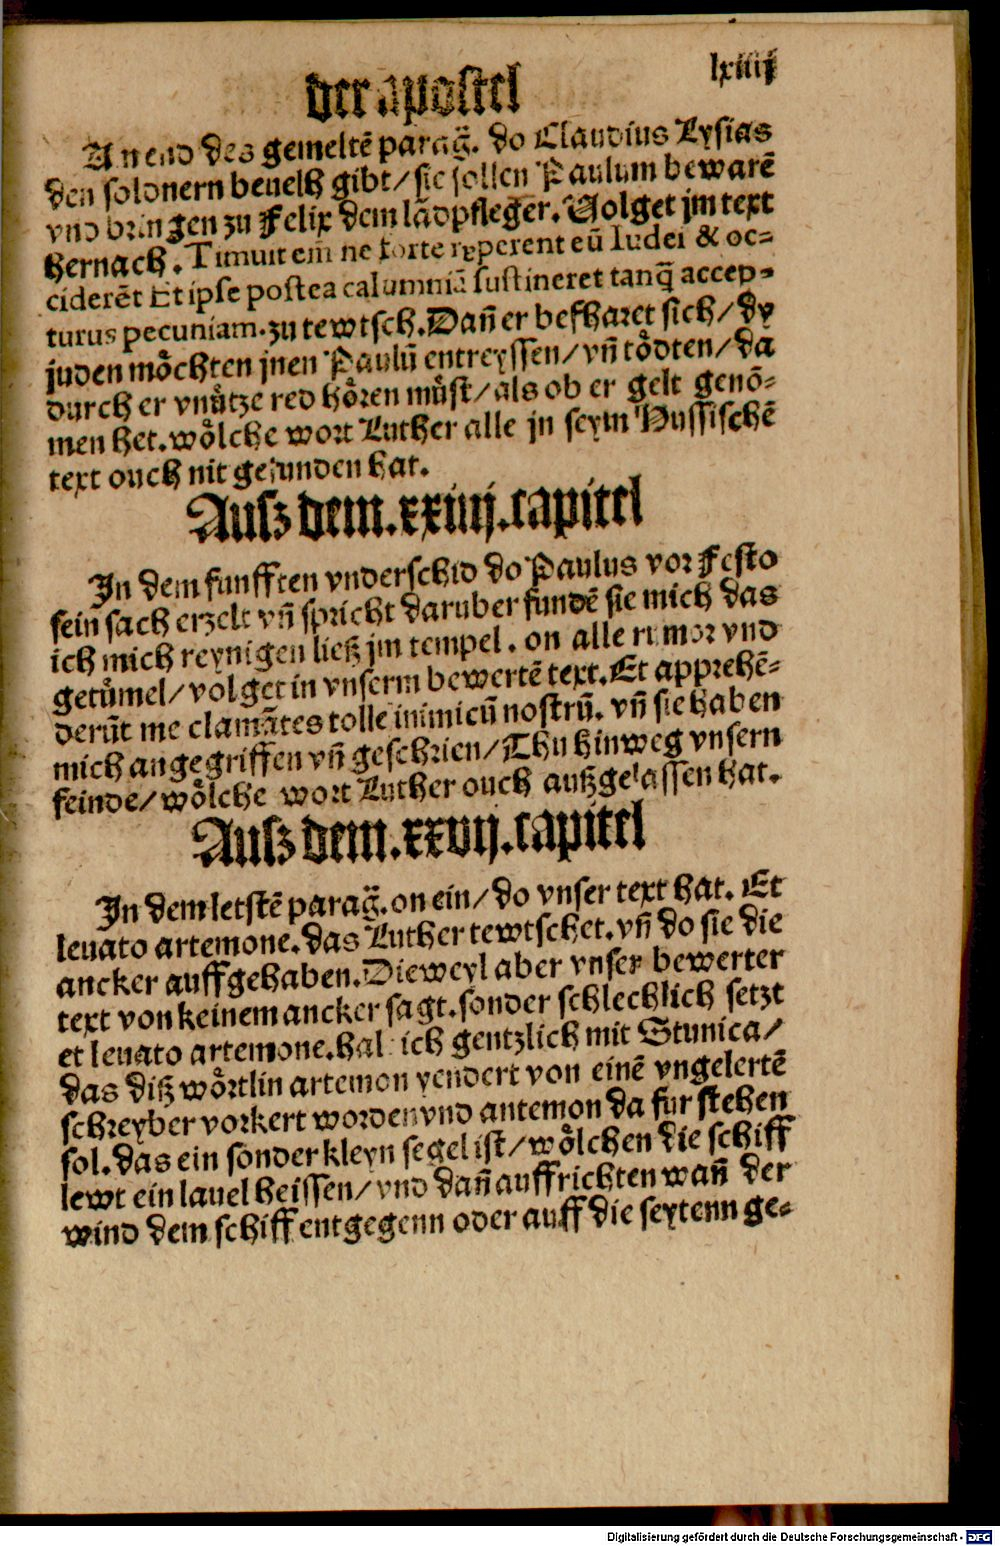 der apostel
lxiiij
An end des gemeltē parag̃. do Claudius Lysias
den soldnern beuelh gibt/ sie sollen Paulum bewarē
vnd bringen zu Felix dem lādpfleger. Volget jm text
hernach. Timuit em̄ ne forte raperent eū Iudei & oc-
ciderēt Et ipse postea calumniā sustineret tanq̄ accep-
turus pecuniam. zu tewtsch. Dañ er befharet sich/ dy
juden mo᷑chten jnen Paulū entreyssen/ vñ to᷑dten/ da
durch er vnu᷑tze red ho᷑ren mu᷑st/ als ob er gelt genō-
men het. wo᷑lche wort Luther alle jn seym Hussischē
text ouch nit gefunden hat.
Ausz dem. xxiiij. capitel
In dem funfften vnderschid do Paulus vor Festo
sein sach erzelt vñ spricht daruber fundē sie mich das
ich mich reynigen ließ jm tempel. on alle rumor vnd
getu᷑mel/ volget in vnserm bewertē text. Et apprehē-
derūt me clamātes tolle inimicū nostrū. vñ sie haben
mich angegriffen vñ geschrien/ Thu hinweg vnsern
feinde/ wo᷑lche wort Luther ouch außgelassen hat.
Ausz dem. xxvij. capitel
In dem letstē parag̃. on ein/ do vnser text hat. Et
leuato artemone. das Luther tewtschet. vñ do sie die
ancker auffgehaben. Dieweyl aber vnser bewerter
text von keinem ancker sagt. sonder schlechlich setzt
et leuato artemone. hal ich gentzlich mit Stunica/
das diß wo᷑rtlin artemon yendert von einē vngelertē
schreyber vorkert worden vnd antemon da fur stehen
sol. das ein sonder kleyn segel ist/ wo᷑lchen die schiff
lewt ein lauel heissen/ vnd dañ auffrichten wañ der
wind dem schiff entgegenn oder auff die seytenn ge-
Digitalisierung gefördert durch die Deutsche Forschungsgemeinschaft - DFG